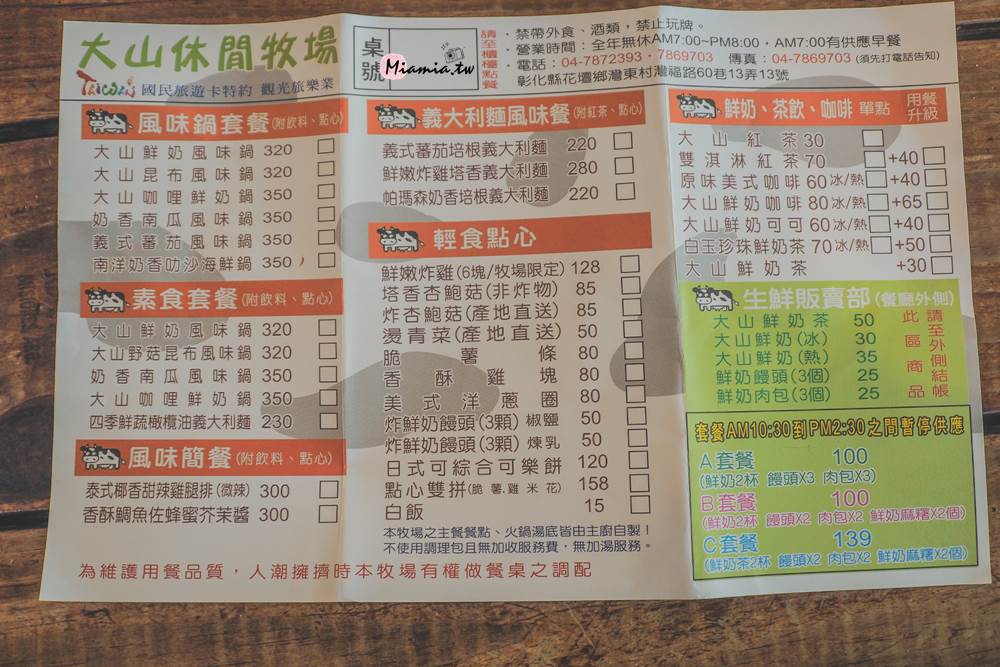 大山休閒牧場
國民旅遊卡特約 觀光旅樂業
桌號
Miamia.tw
請至櫃檯點餐
・禁帶外食、酒類，禁止玩牌。
・營業時間：全年無休AM7:00~PM8:00，AM7:00有供應早餐
・電話：04-7872393・7869703 傳真：04-7869703 (須先打電話告知)
彰化縣花壇鄉灣東村灣福路60巷13弄13號
風味鍋套餐(附飲料、點心)
大山鮮奶風味鍋 320
大山昆布風味鍋 320
大山咖哩鮮奶鍋 350
奶香南瓜風味鍋 350
義式蕃茄風味鍋 350
南洋奶香叻沙海鮮鍋 350
素食套餐(附飲料、點心)
大山鮮奶風味鍋 320
大山野菇昆布風味鍋 320
奶香南瓜風味鍋 350
大山咖哩鮮奶鍋 350
四季鮮蔬橄欖油義大利麵 230
風味簡餐(附飲料、點心)
泰式椰香甜辣雞腿排(微辣) 300
香酥鯛魚佐蜂蜜芥茉醬 300
義大利麵風味餐(附紅茶、點心)
義式蕃茄培根義大利麵 220
鮮嫩炸雞塔香義大利麵 280
帕瑪森奶香培根義大利麵 220
輕食點心
鮮嫩炸雞(6塊/牧場限定) 128
塔香杏鮑菇(非炸物) 85
炸杏鮑菇(產地直送) 85
燙青菜(產地直送) 50
脆薯條 80
香酥雞塊 80
美式洋蔥圈 80
炸鮮奶饅頭(3顆)椒鹽 50
炸鮮奶饅頭(3顆)煉乳 50
日式可綜合可樂餅 120
點心雙拼(脆薯.雞米花) 158
白飯 15
本牧場之主餐餐點、火鍋湯底皆由主廚自製！
不使用調理包且無加收服務費，無加湯服務。
鮮奶、茶飲、咖啡 單點 用餐升級
大山紅茶 30
雙淇淋紅茶 70 +40
原味美式咖啡 60 冰/熱 +40
大山鮮奶咖啡 80 冰/熱 +65
大山鮮奶可可 60 冰/熱 +40
白玉珍珠鮮奶茶 70 冰/熱 +50
大山鮮奶茶 +30
生鮮販賣部(餐廳外側)
大山鮮奶茶 50
大山鮮奶(冰) 30
大山鮮奶(熱) 35
鮮奶饅頭(3個) 25
鮮奶肉包(3個) 25
此區商品
請至外側結帳
套餐AM10:30到PM2:30之間暫停供應
A套餐 100
(鮮奶2杯 饅頭X3 肉包X3)
B套餐 100
(鮮奶2杯 饅頭X2 肉包X2 鮮奶麻糬X2個)
C套餐 139
(鮮奶茶2杯 饅頭X2 肉包X2 鮮奶麻糬X2個)
為維護用餐品質，人潮擁擠時本牧場有權做餐桌之調配